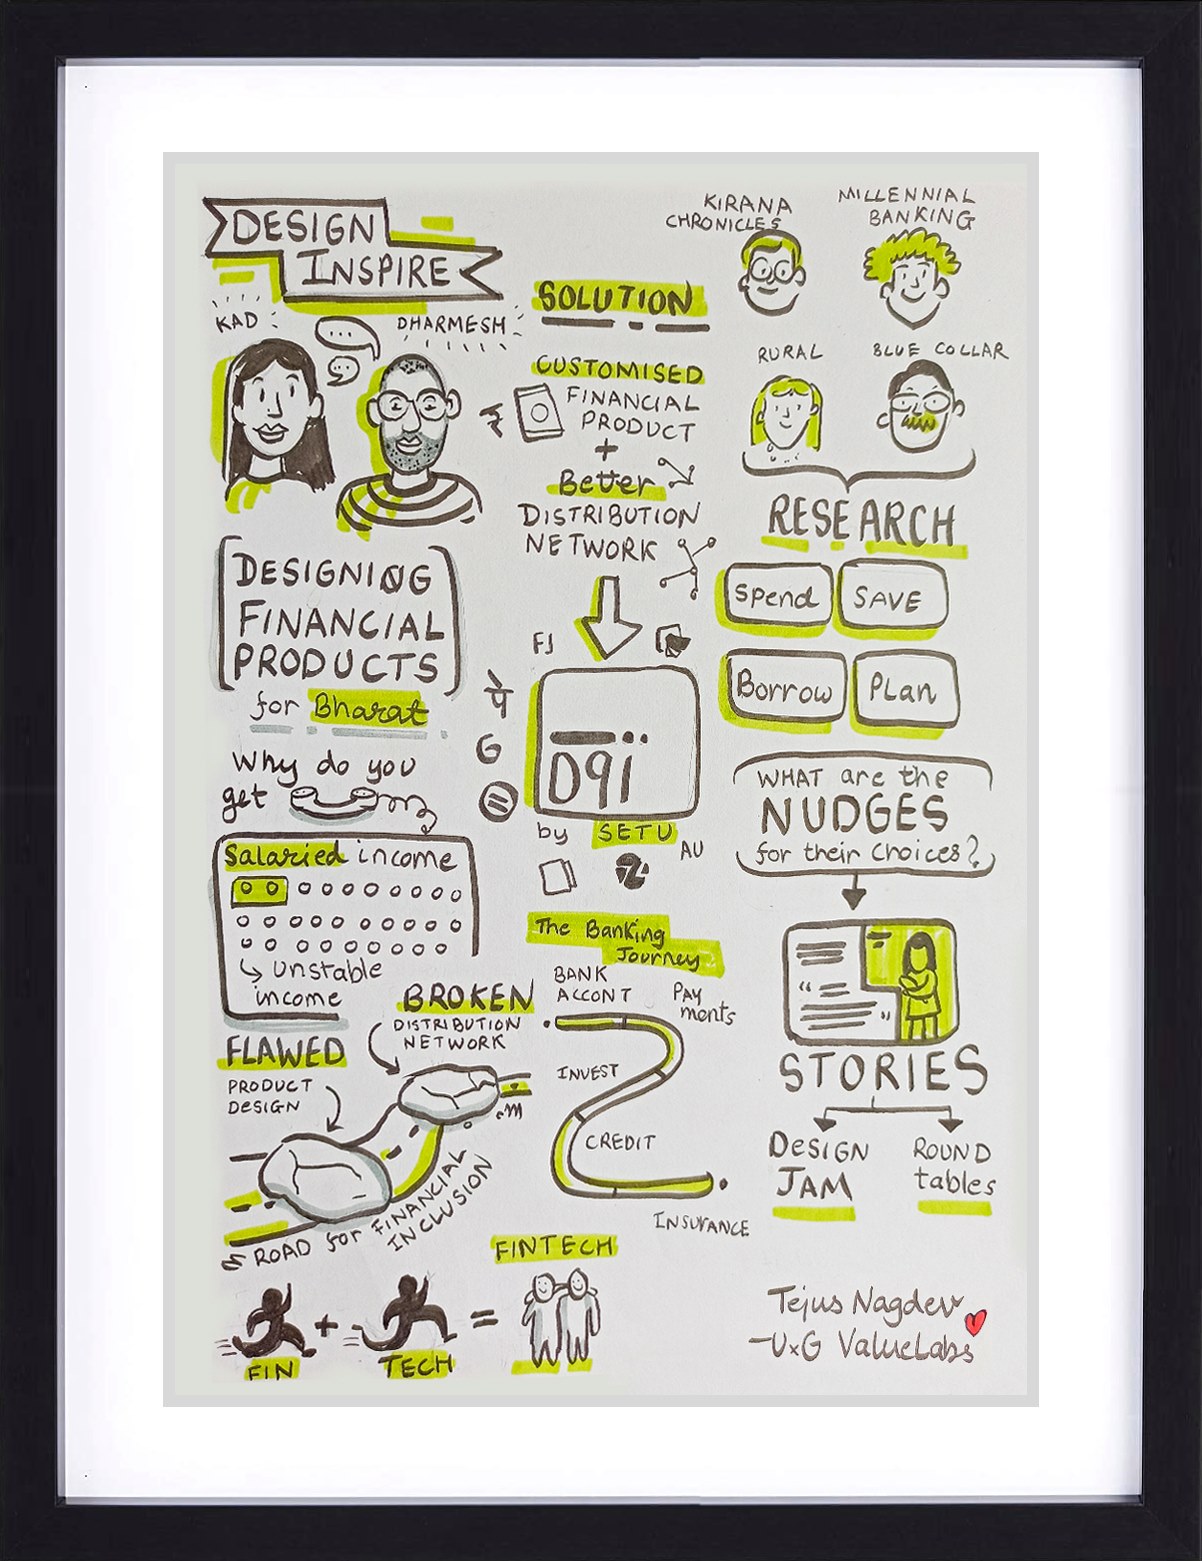 DESIGN
INSPIRE
KAD
DHARMESH
DESIGNING
FINANCIAL
PRODUCTS
for Bharat
Why do you
get
Salaried income
unstable
income
BROKEN
DISTRIBUTION
NETWORK
FLAWED
PRODUCT
DESIGN
ROAD for FINANCIAL
INCLUSION
FIN
+
TECH
=
FINTECH
SOLUTION
CUSTOMISED
₹
FINANCIAL
PRODUCT
+
Better
DISTRIBUTION
NETWORK
पे
G
D91
by SETU
AU
The Banking
Journey
BANK
ACCONT
PAY
ments
INVEST
CREDIT
INSURANCE
KIRANA
CHRONICLES
MILLENNIAL
BANKING
RURAL
BLUE COLLAR
RESEARCH
Spend
SAVE
Borrow
Plan
WHAT are the
NUDGES
for their choices?
STORIES
DESIGN
JAM
ROUND
tables
Tejus Nagdev
-UxG ValueLabs